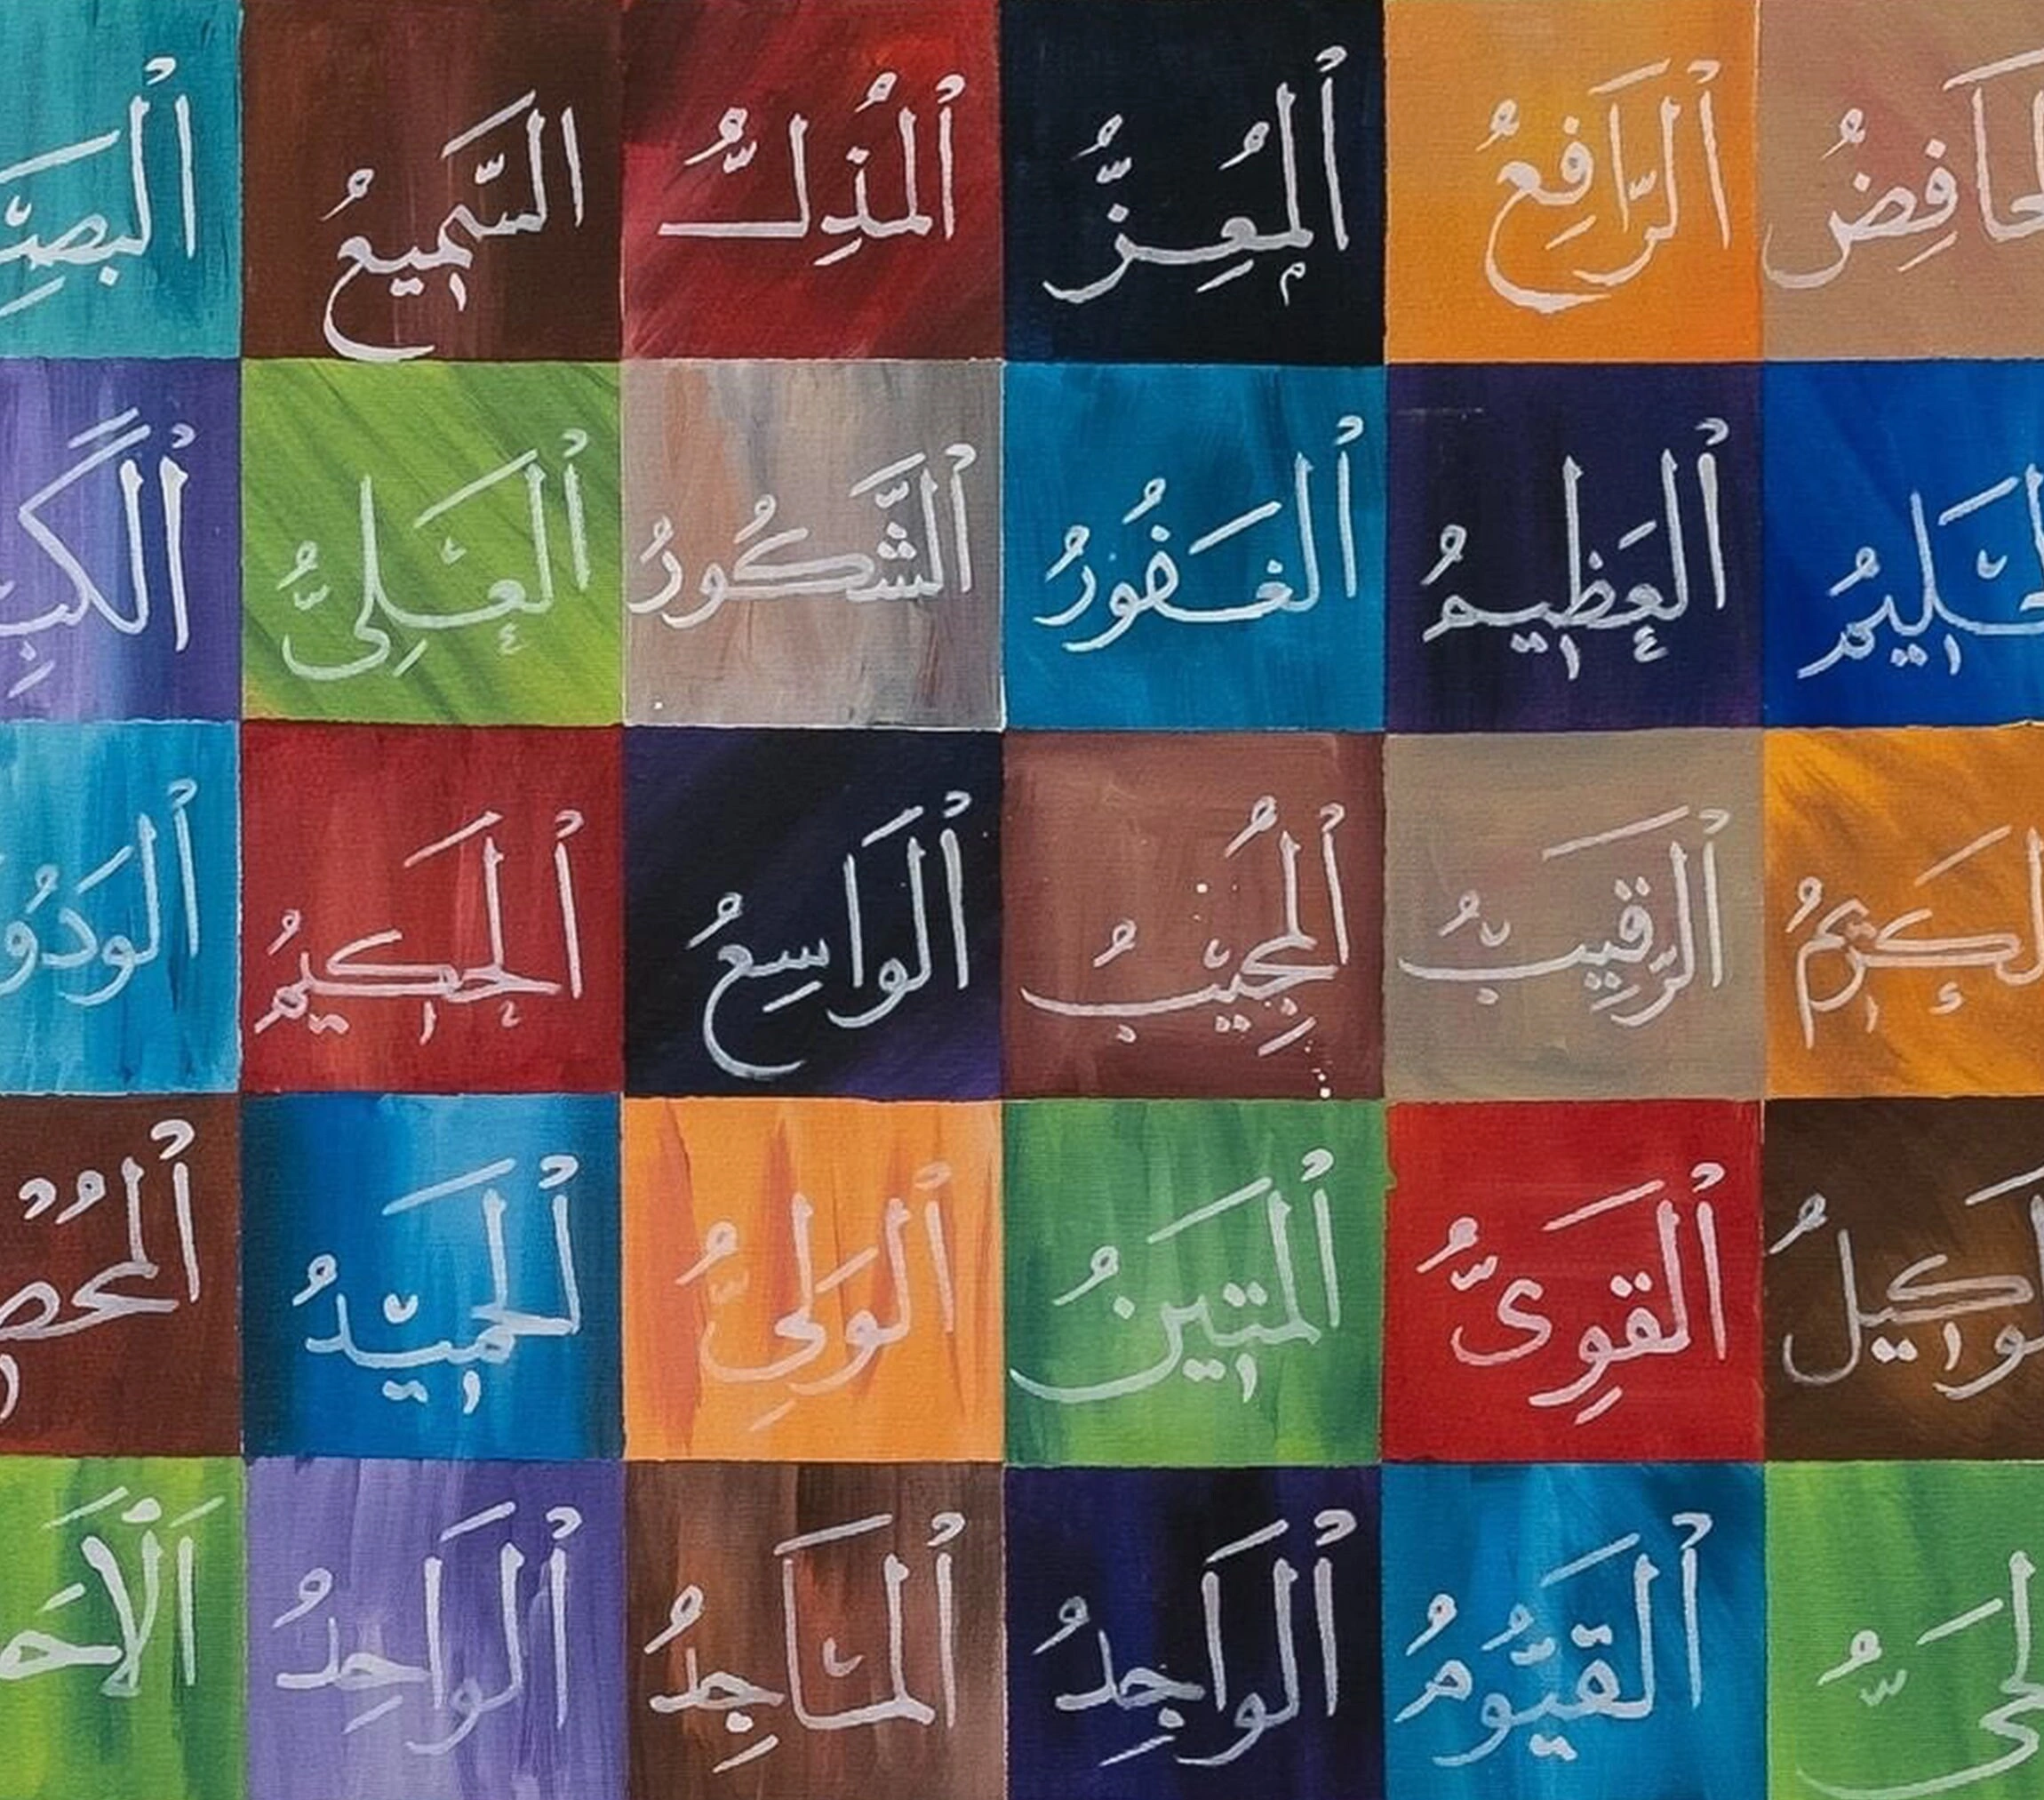 لخَافِضُ الرَّافِعُ الْمُعِزُّ الْمُذِلُّ السَّمِيعُ الْبَصِيـ
لحَلِيمُ الْعَظِيمُ الْغَفُورُ الشَّكُورُ الْعَلِىُّ الْكَبِـ
لكَرِيمُ الرَّقِيبُ الْمُجِيبُ الْوَاسِعُ الْحَكِيمُ الْوَدُو
لوَكِيلُ الْقَوِىُّ الْمَتِينُ الْوَلِىُّ الْحَمِيدُ الْمُحْصِـ
لحَىُّ الْقَيُّومُ الْوَاجِدُ الْمَاجِدُ الْوَاحِدُ اَلْاَحَـ